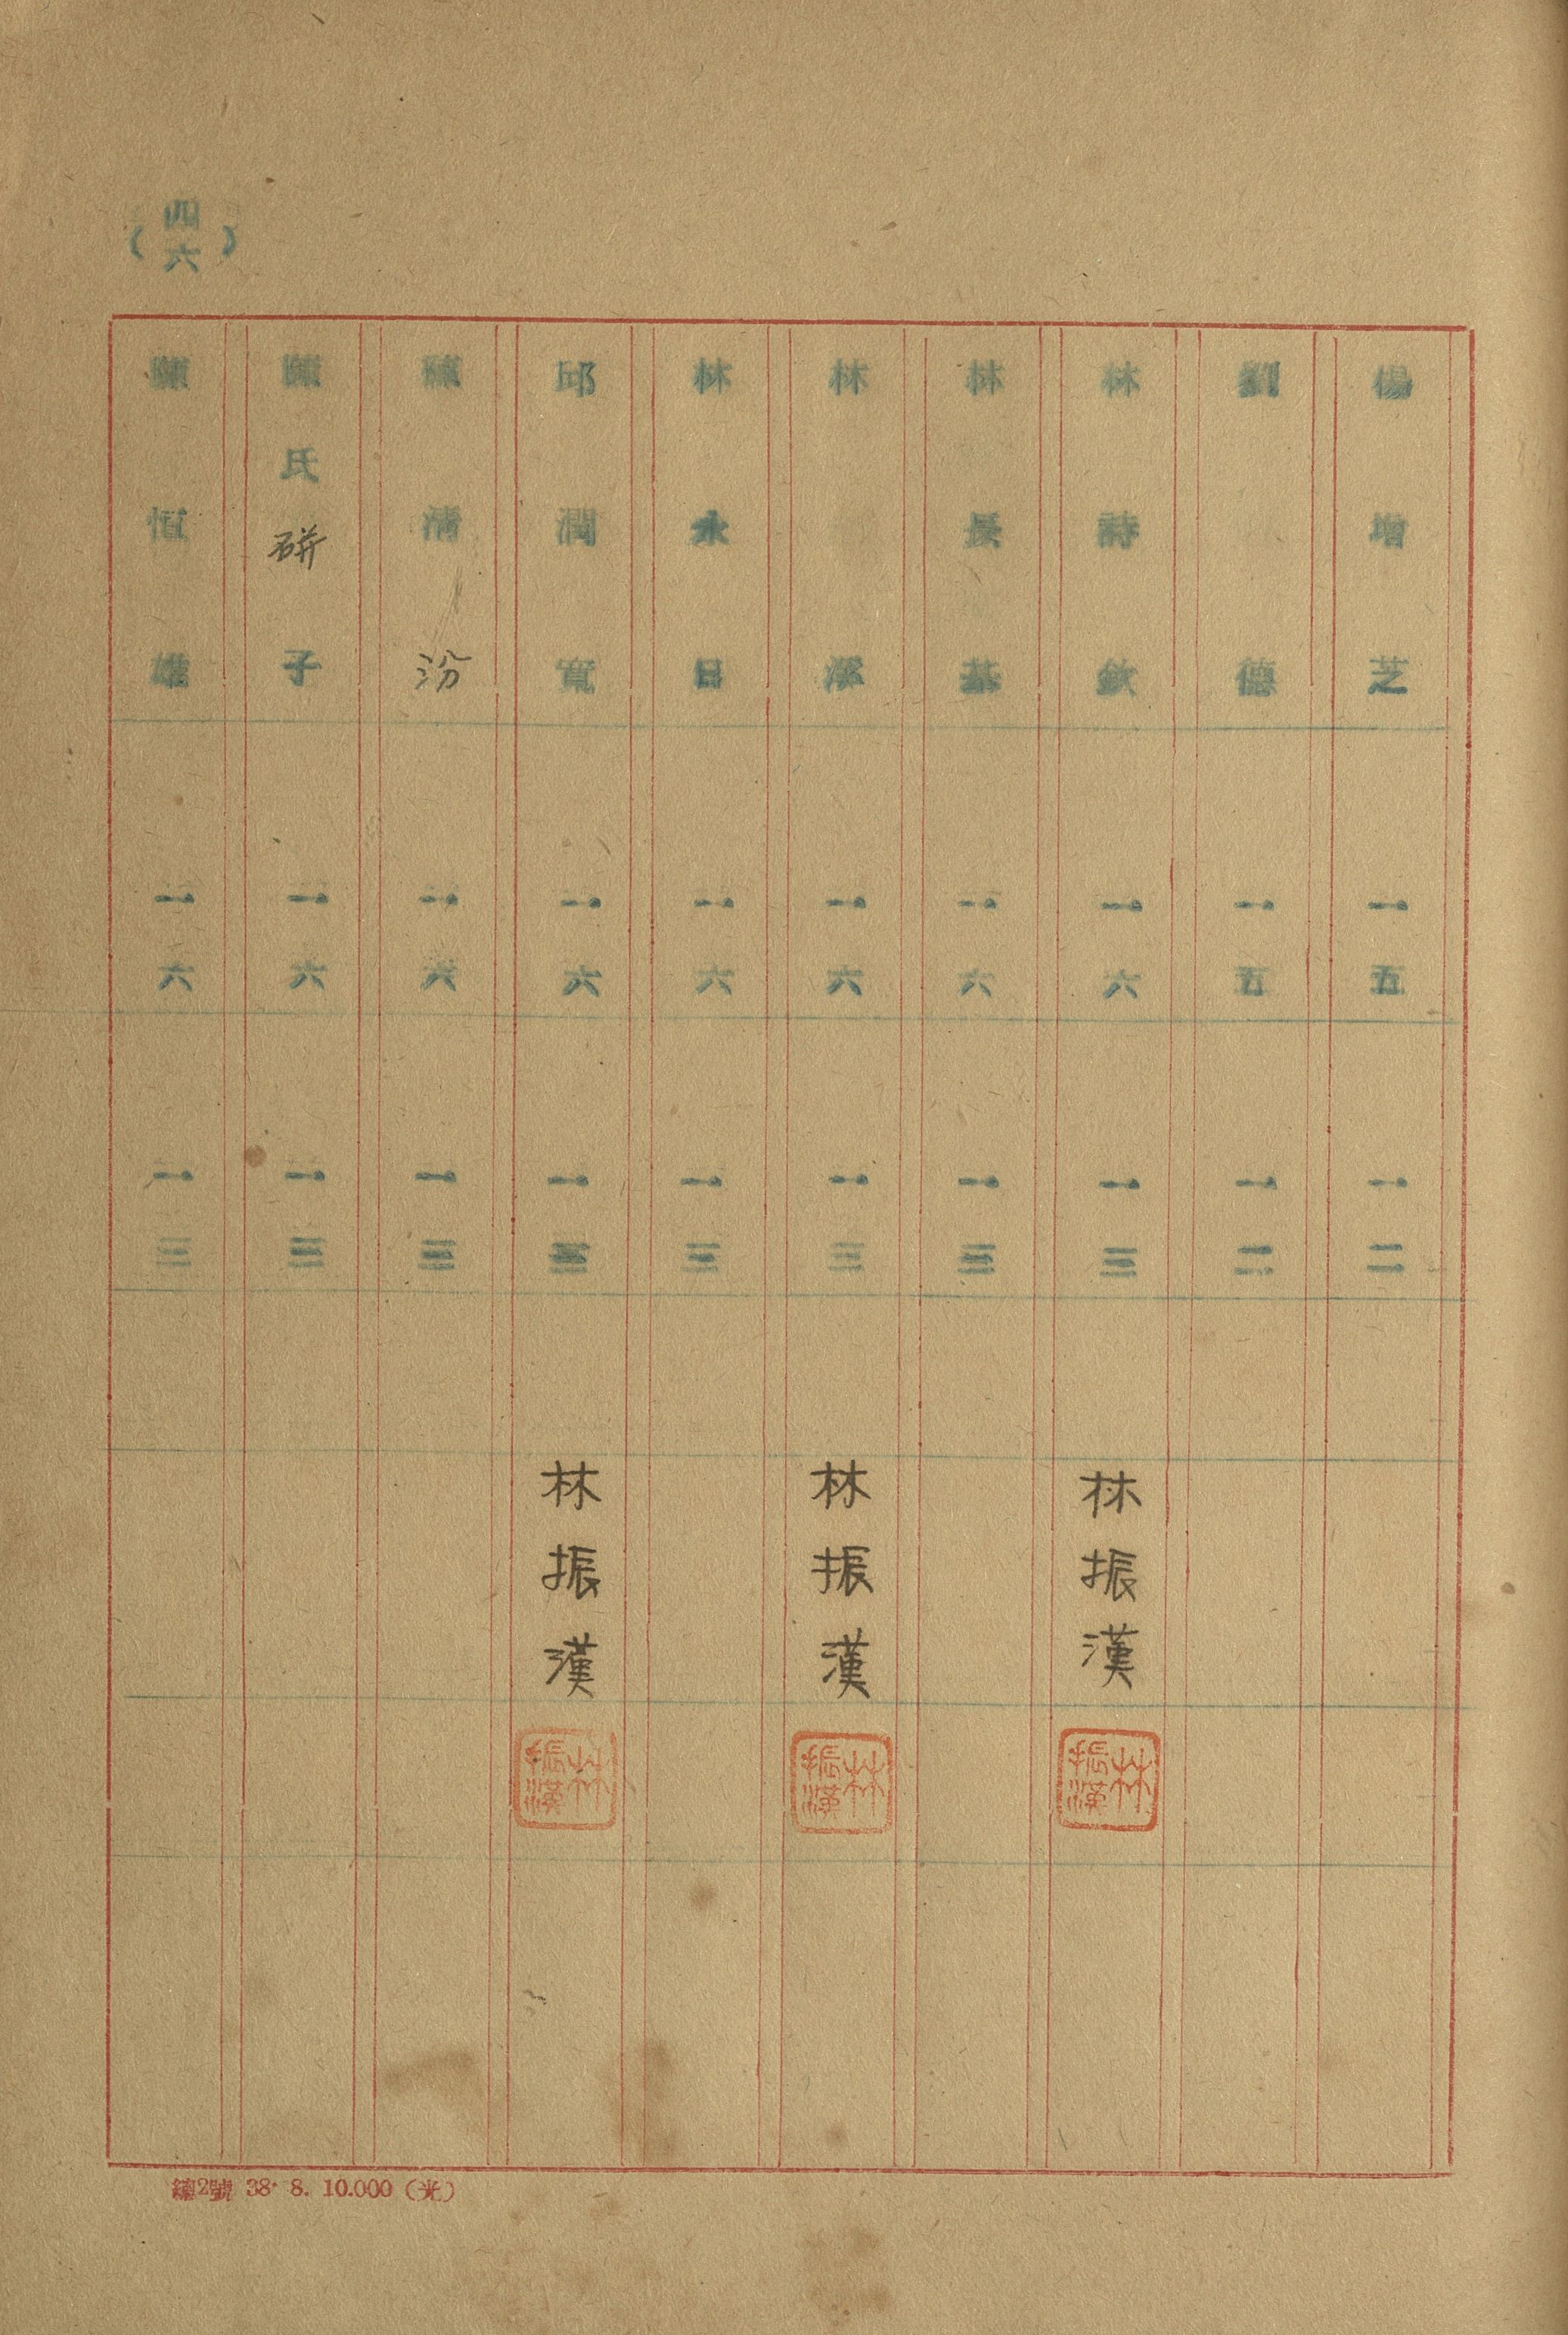 (四六)
楊增芝 一五 一二
劉 德 一五 一二
林詩欽 一六 一三 林振漢 林振漢
林長基 一六 一三
林 一六 一三 林振漢 林振漢
林永日 一六 一三
邱潤寬 一六 一三 林振漢 林振漢
清汾 一六 一三
陳氏硑子 一六 一三
陳恒雄 一六 一三
總2號 38· 8. 10.000(光)